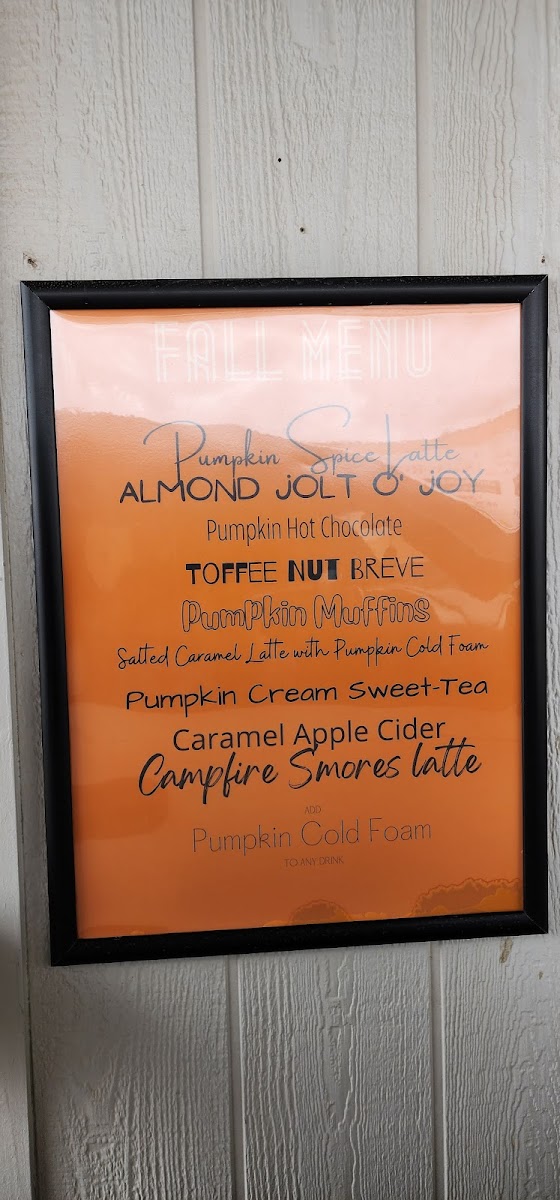 FALL MENU
Pumpkin Spice Latte
ALMOND JOLT O' JOY
Pumpkin Hot Chocolate
TOFFEE NUT BREVE
PumPkin Muffins
Salted Caramel Latte with Pumpkin Cold Foam
Pumpkin Cream Sweet-Tea
Caramel Apple Cider
Campfire S'mores latte
ADD
Pumpkin Cold Foam
TO ANY DRINK